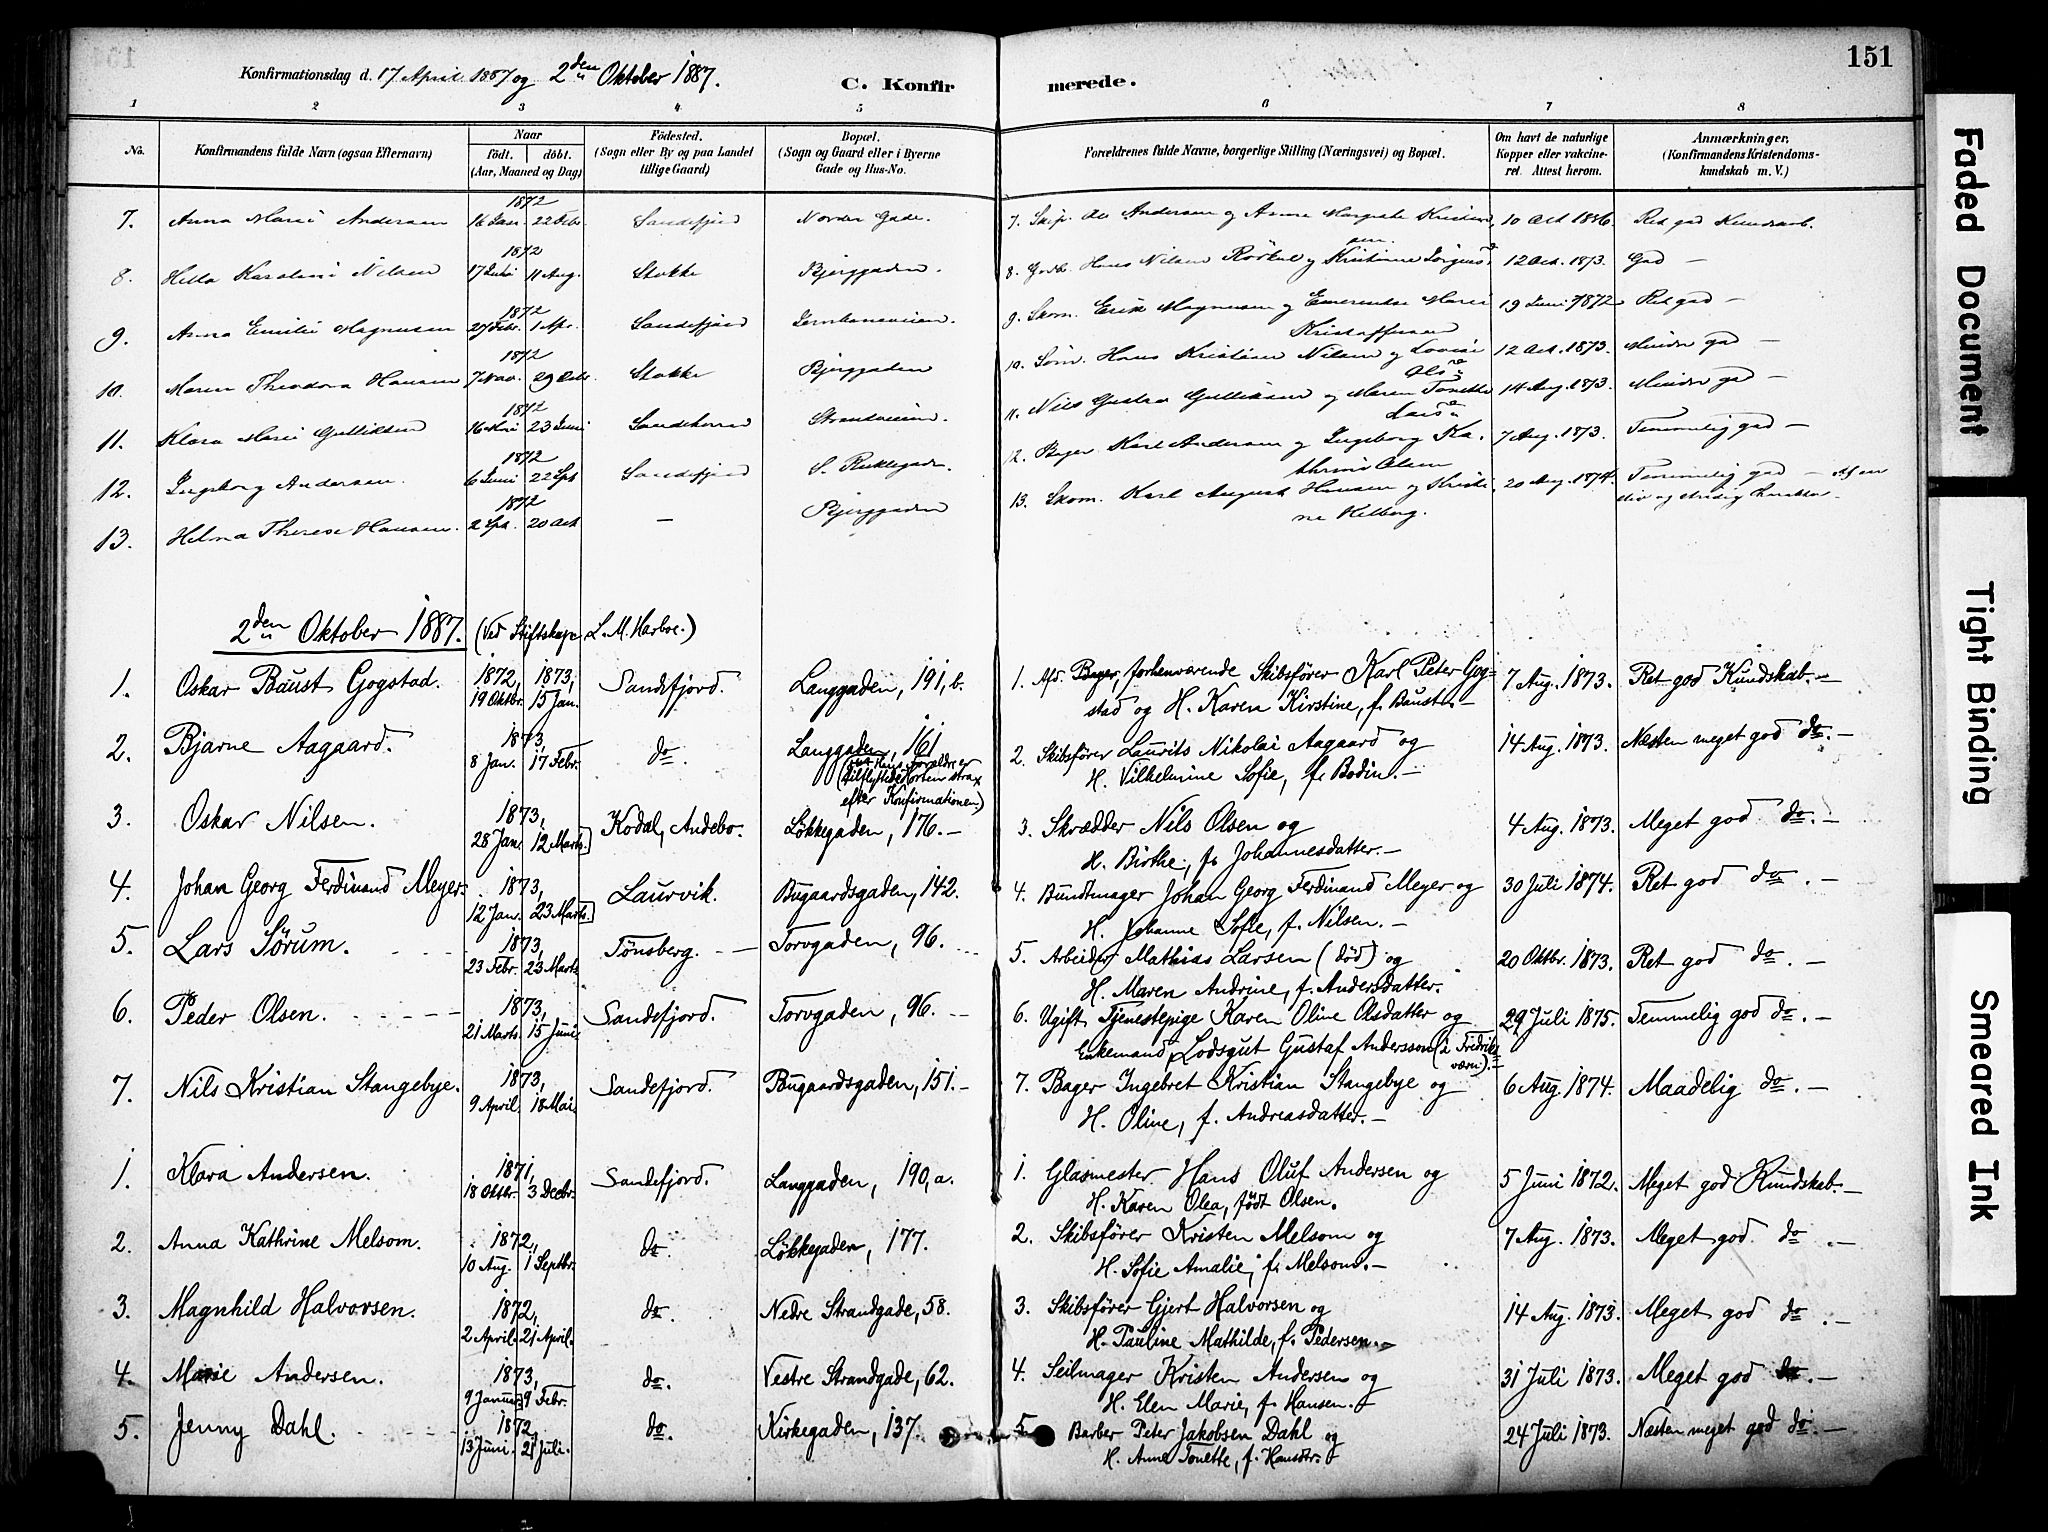 Konfirmationsdag d. 17 April 1887 og 2den Oktober 1887.
C. Konfir merede.
151
1 2 3 4 5 6 7 8
No. Konfirmandens fulde Navn (ogsaa Efternavn) Naar født. døbt. (Aar, Maaned og Dag) Fødested. (Sogn eller By og paa Landet tillige Gaard) Bopæl. (Sogn og Gaard eller i Byerne Gade og Hus-No. Forældrenes fulde Navne, borgerlige Stilling (Næringsvei) og Bopæl. Om havt de naturlige Kopper eller vakcineret. Attest herom. Anmærkninger. (Konfirmandens Kristendomskundskab m. V.)
7. Anna Marie Andersen 1872 16 Jan. 22 Febr. Sandefjord Nordre Gade. 7. Andersen og Anne Margrete 10 Oct 1886. Ret god Kundskab.
8. Karoline Nilsen 1872 17 Juni 11 Aug. Stokke Bjerggaden. 8. Hans Nilsen og Kristine 12 Oct. 1873. God —
9. Anna Emilie Magnusen 1872 27 Febr. 1 Apr. Sandefjord Jernbaneveien. 9. Skom. Erik Magnusen og Emerentse Marie Kristoffersen 19 Juni 1872 Ret god —
10. Maren Theodora Hansen 1872 7 Nov. 29 Stokke Bjerggaden 10. Søm. Hans Kristian Nilsen og Lovise 12 Oct. 1873. Mindre god —
11. Klara Marie Gulliksen 1872 16 Mai 23 Juni Sandeherred Strandveien. 11. Nils Gustav Gulliksen og Maren Tonette 14 Aug. 1873. Mindre god —
12. Ingeborg Andersen. 1872 6 Juni 22 Spt Sandefjord 12. Bager Karl Andersen og Ingeborg Kathrine Olsen 7 Aug. 1873. Temmelig god —
13. Helma Therese Hansen. 1872 2 Spt. 20 Oct — Bjerggaden 13. Skom. Karl August Hansen og Kristine Kelborg. 20 Aug. 1874. Temmelig god — Af en
2den Oktober 1887. (Ved Stiftskap. L. M. Harboe.)
1. Oskar Baust Gogstad. 1872, 19 Oktbr. 1873, 15 Jan. Sandefjord. Langgaden, 191, b. 1. Afs. Bager, forhenværende Skibsfører Karl Peter Gog=
stad og H. Karen Kirstine, f. Baust. — 7 Aug. 1873. Ret god Kundskab. —
2. Bjarne Aagaard. 1873, 8 Jan. 17 Febr. do. Langgaden, 161 2. Skibsfører Laurits Nikolai Aagaard og
H. Vilhelmine Sofie, f. Bodin. — 14 Aug. 1873. Næsten meget god do. —
efter Konfirmationen.)
3. Oskar Nilsen. 1873, 28 Jan. 12 Marts Kodal, Andebo. Løkkegaden, 176. — 3. Skrædder Nils Olsen og
H. Birthe, f. Johannesdatter. — 4 Aug. 1873. Meget god do. —
4. Johan Georg Ferdinand Meyer. 1873, 12 Jan. 23 Marts Laurvik. Bugaardsgaden, 142. 4. Bundtmager Johan Georg Ferdinand Meyer og
H. Johanne Sofie, f. Nilsen. — 30 Juli 1874. Ret god do. —
5. Lars Sörum. 1873, 23 Febr. 23 Marts Tönsberg. Torvgaden, 96. 5. Arbeider Mathias Larsen (död) og
H. Maren Andrine, f. Andersdatter. 20 Oktbr. 1873. Ret god do. —
6. Peder Olsen. 1873, 21 Marts. 15 Juni Sandefjord. Torvgaden, 96. 6. Ugift Tjenestepige Karen Oline Olsdatter og
Enkemand Lodsgut Gustaf Andersson (à Fredriks=
værn). — 29 Juli 1875. Temmelig god do. —
7. Nils Kristian Stangebye. 1873, 9 April. 18 Mai. Sandefjord. Bugaardsgaden, 151. — 7. Bager Ingebret Kristian Stangebye og
H. Oline, f. Andreasdatter. — 6 Aug. 1874. Maadelig do. —
1. Klara Andersen. 1871, 18 Oktbr. 3 Decbr. Sandefjord. Langgaden, 190, a. 1. Glasmester Hans Oluf Andersen og
H. Karen Olea, født Olsen. 5 Juni 1872. Meget god Kundskab. —
2. Anna Kathrine Melsom. 1872, 10 Aug. 1 Septbr. do. Løkkegaden, 177. 2. Skibsfører Kristen Melsom og
H. Sofie Amalie, f. Melsom. — 7 Aug. 1873. Meget god do. —
3. Magnhild Halvorsen. 1872, 2 April. 21 April. do. Nedre Strandgade, 58. 3. Skibsfører Gjert Halvorsen og
H. Pauline Mathilde, f. Pedersen. — 14 Aug. 1873. Meget god do. —
4. Marie Andersen. 1873, 9 Januar 9 Febr. do. Vestre Strandgade, 62. 4. Seilmager Kristen Andersen og
H. Elen Marie, f. Hansen. 31 Juli 1873. Meget god do. —
5. Jenny Dahl. 1872, 13 Juni. 21 Juli. do. Kirkegaden, 137. 5. Barber Peter Jakobsen Dahl og
H. Anne Tonette, f. Hansdtr. 24 Juli 1873. Næsten meget god do. —
Faded Document
Tight Binding
Smeared Ink